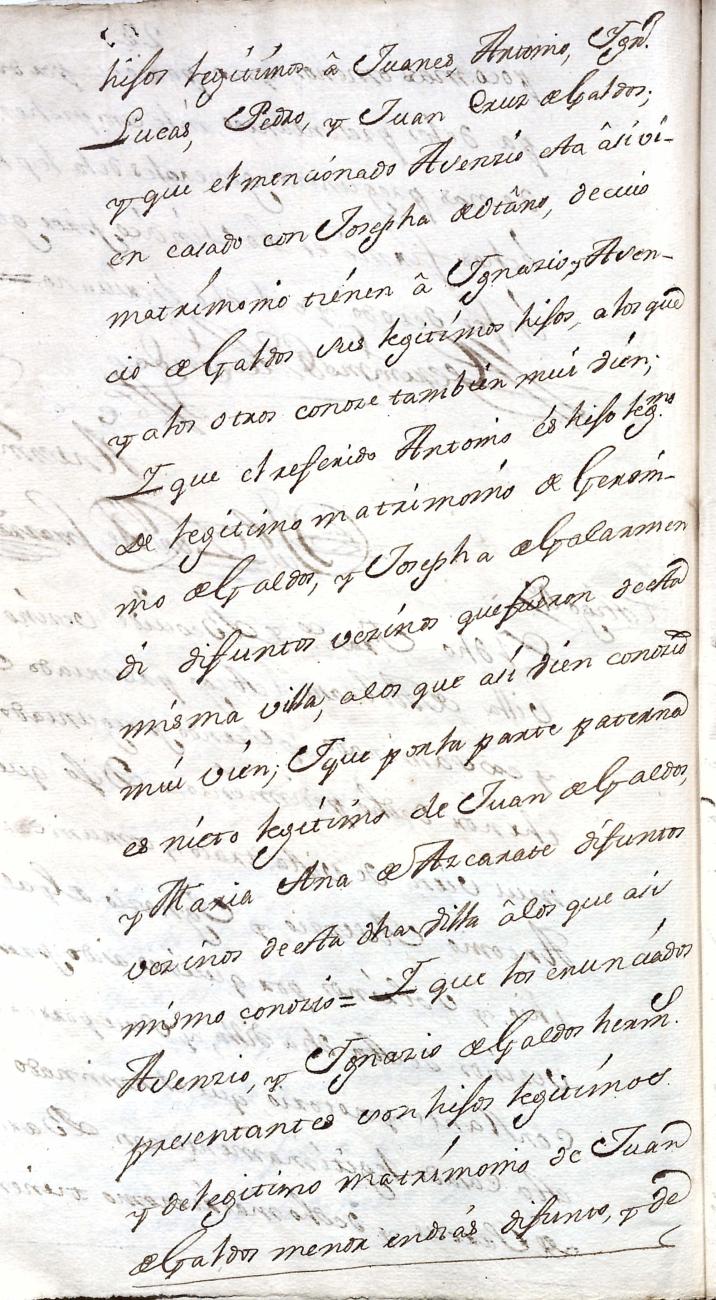 hisos legitimos â Juanes Antonio, Ygn.º
Lucas, Pedro, y Juan Cruz de Galdos;
y que el mencionado Asenzio esta âsi vi-
en casado con Josepha de Otâno, de cuio
matrimonio tiénen â Ygnazio, y Asen-
cio de Galdos sus legitimos hisos, alos que
y alos otros conoze tambien mui bién;
Y que el referido Antonio és hiso leg.mo
De legitimo matrimonio de Geroni-
mo de Galdos, y Josepha de Galarmen
di difuntos vezinos que fueron de esta
misma villa, alos que asi bien conozió
mui vien; Y que por la parte paterna
es nieto legitimo de Juan de Galdos,
y Maria Ana de Azcarate difuntos
vezinos de esta dha villa âlos que asi
mismo conozio = Y que los enunciados
Asenzio, y Ygnazio de Galdos herm.s
presentantes son hisos legitimos
y de legitimo matrimonio de Juan
de Galdos menor en dias difunto, y de